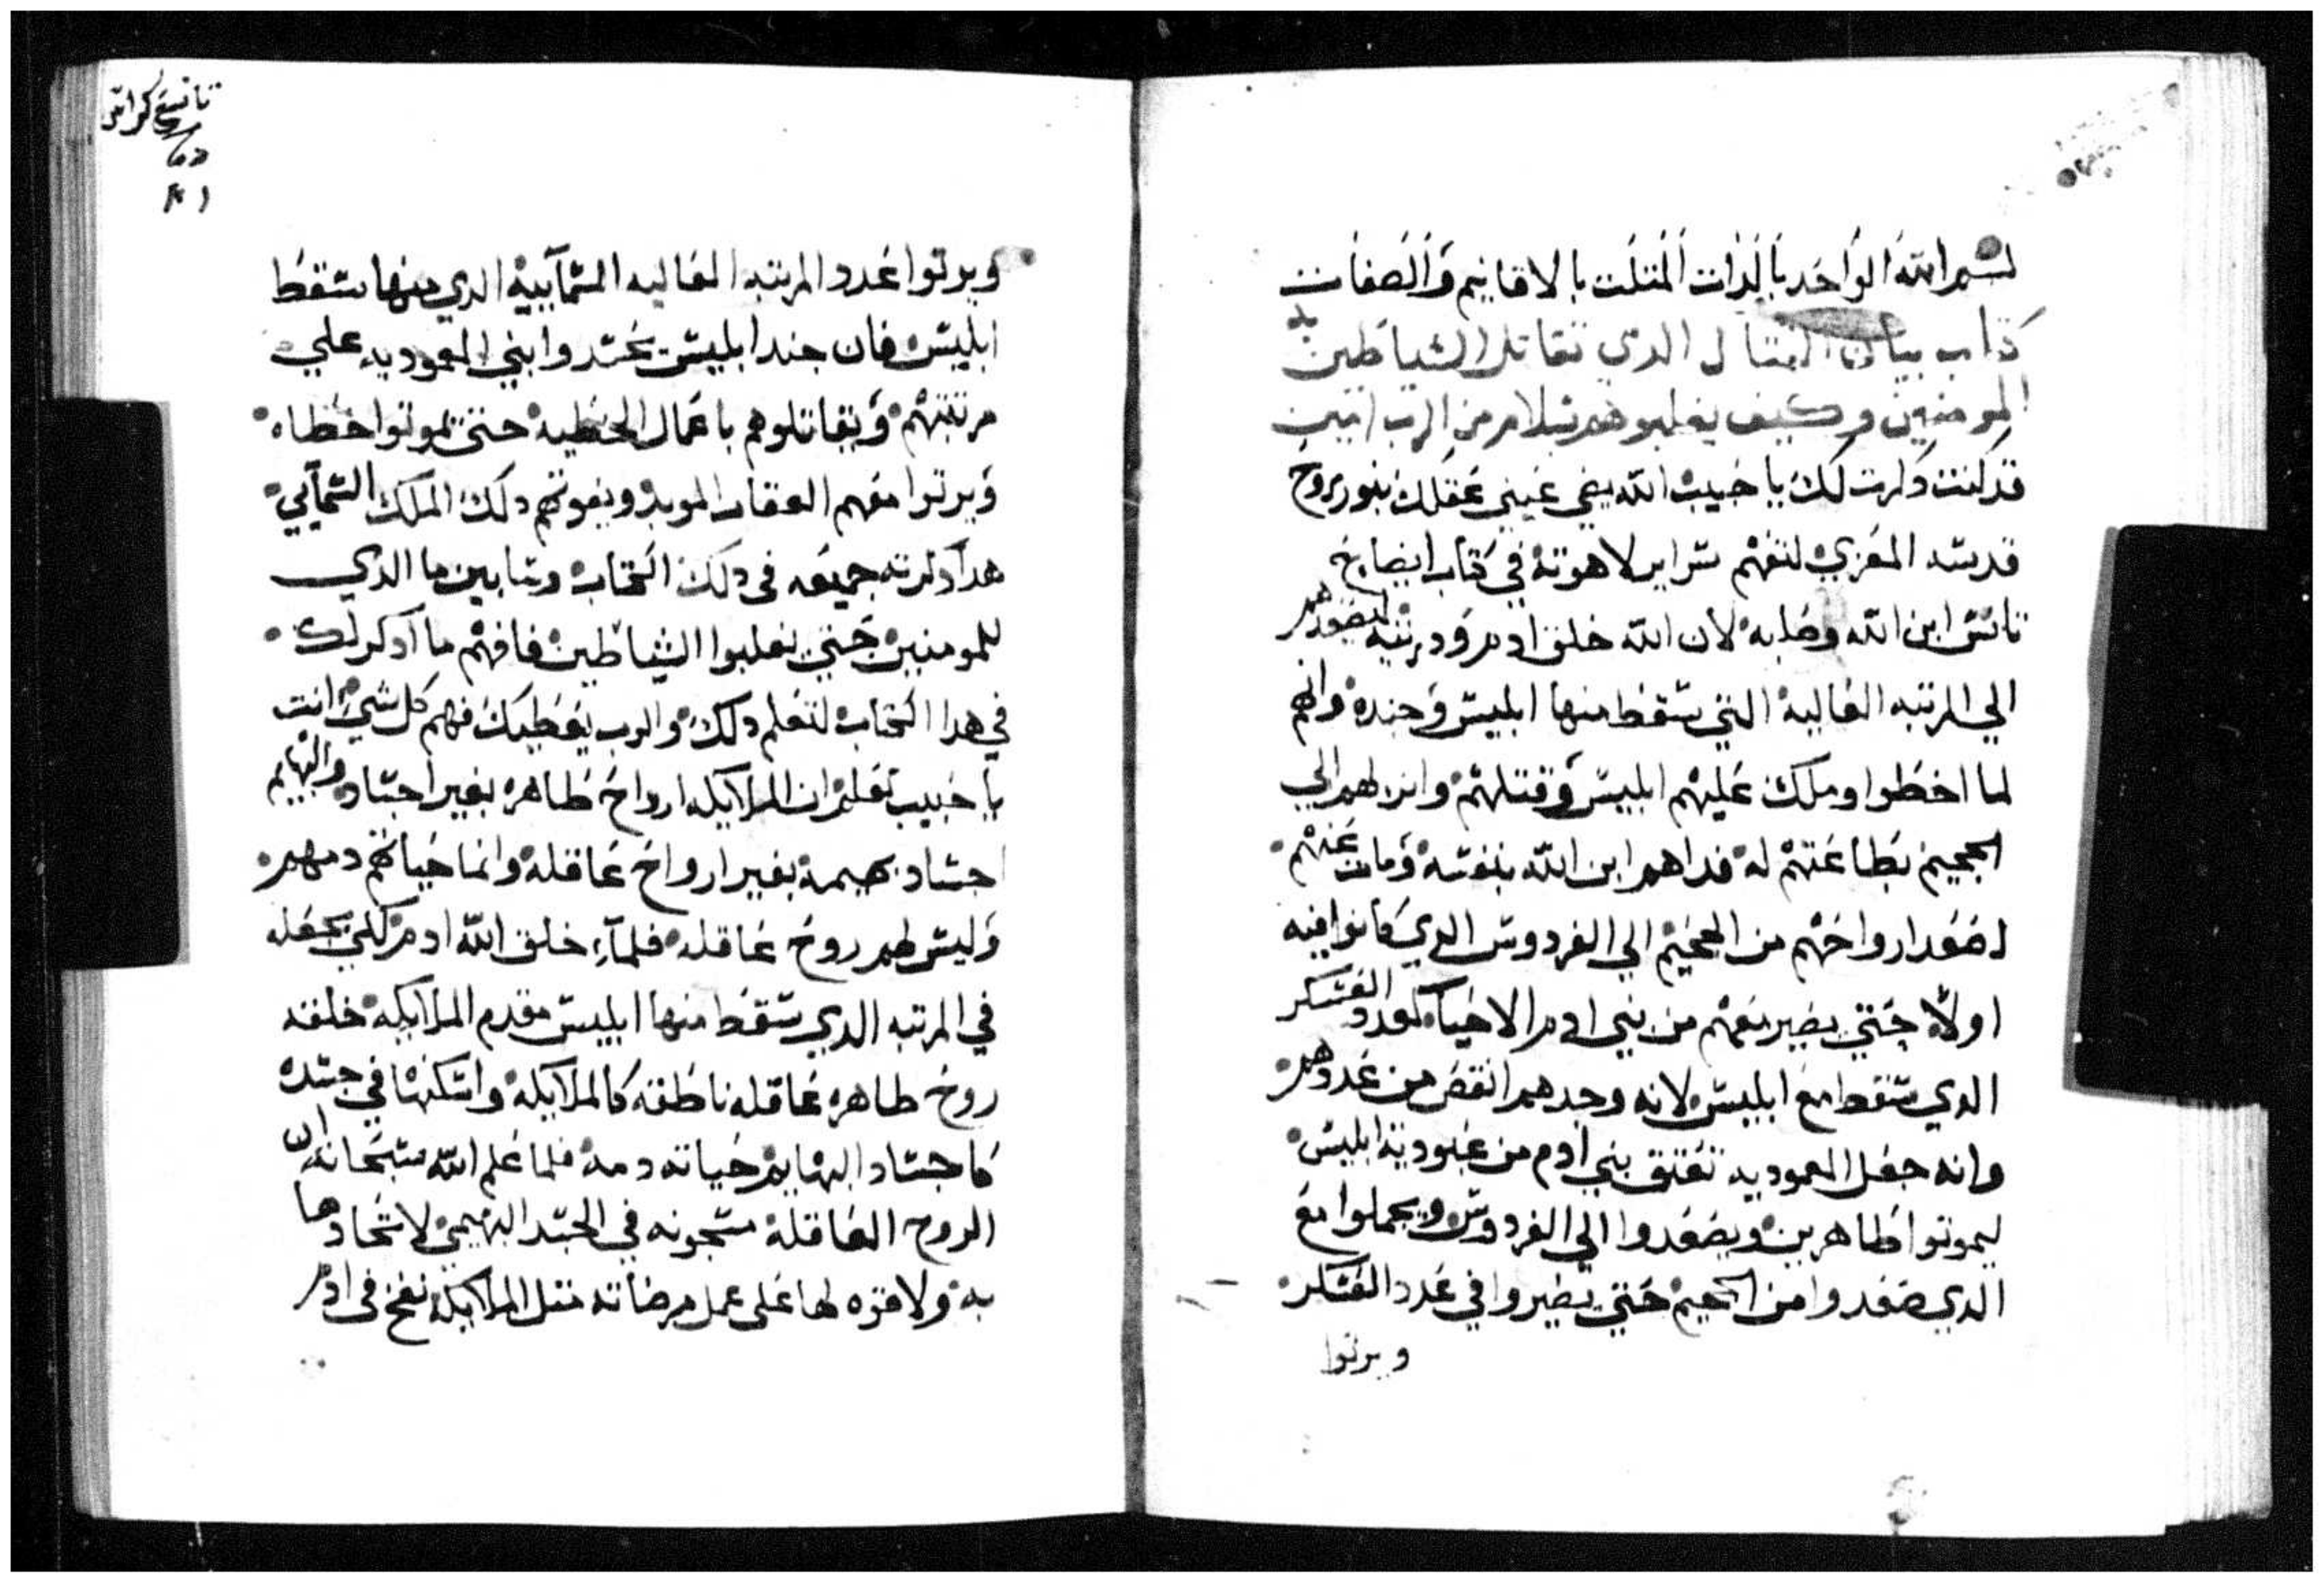 بسم الله الواحد بالذات المتلت بالاقانيم والصفات
كتاب بيان القتال الدي تقاتل الشياطين به
المومنين وكيف يغلبوهم بسلام من الرب امين
قد كنت دكرت لك يا حبيب الله يضي عيني عقلك بنور روح
قدسه المعزي لتفهم سراير لاهوته في كتاب ايضاح
تانس ابن الله وصلبه لان الله خلق ادم ودريته ليصعدهم
الي المرتبه العاليه التي سقط منها ابليس وجنده وانهم
لما اخطوا وملك عليهم ابليس وقتلهم وانزلهم الي
الجحيم بطاعتهم له فداهم ابن الله بنفسه ومات عنهم
اصعد ارواحهم من الجحيم الي الفردوس الدي كانوا فيه
اولا حتي يصير معهم من بني ادم الاحيا كعدد العسكر
الدي سقط مع ابليس لانه وجدهم انقص من عددهم
وانه جعل المعموديه تعتق بني ادم من عبودية ابليس
ليموتوا طاهرين ويصعدوا الي الفردوس ويجملوا مع
الدي صعدوا من الجحيم حتي يصيروا في عدد العسكر
ويرتوا
تاسع كراس
ويرتوا عدد المرتبه العاليه السمآييه الدي منها سقط
ابليس فان جند ابليس يحسدوا بني المعموديه علي
مرتبتهم ويقاتلوهم باعمال الخطيه حتي يموتوا خطاه
ويرتوا معهم العقاب الموبد ويفوتهم دلك الملك السمآيي
هدا دكرته جميعه في دلك الكتاب وسابين ما الدي
للمومنين حتي يغلبوا الشياطين فافهم ما ادكر لك
في هدا الكتاب لتعلم دلك والرب يعطيك فهم كل شي انت
يا حبيب تعلم ان الملايكه ارواح طاهره بغير اجساد والبهايم
اجساد بهيمة بغير ارواح عاقله وانما حياتهم دمهم
وليس لهم روح عاقله فلما خلق الله ادم لكي يجعله
في المرتبه الدي سقط منها ابليس مقدم الملايكه خلقه
روح طاهره عاقله ناطقه كالملايكه واسكنها في جسده
كاجساد البهايم حياته دمه فلما علم الله سبحانه ان
الروح العاقله مسجونه في الجسد البهيمي لاتحادها
به ولا قوه لها علي عمل مرضاته متل الملايكه نفخ في ادم